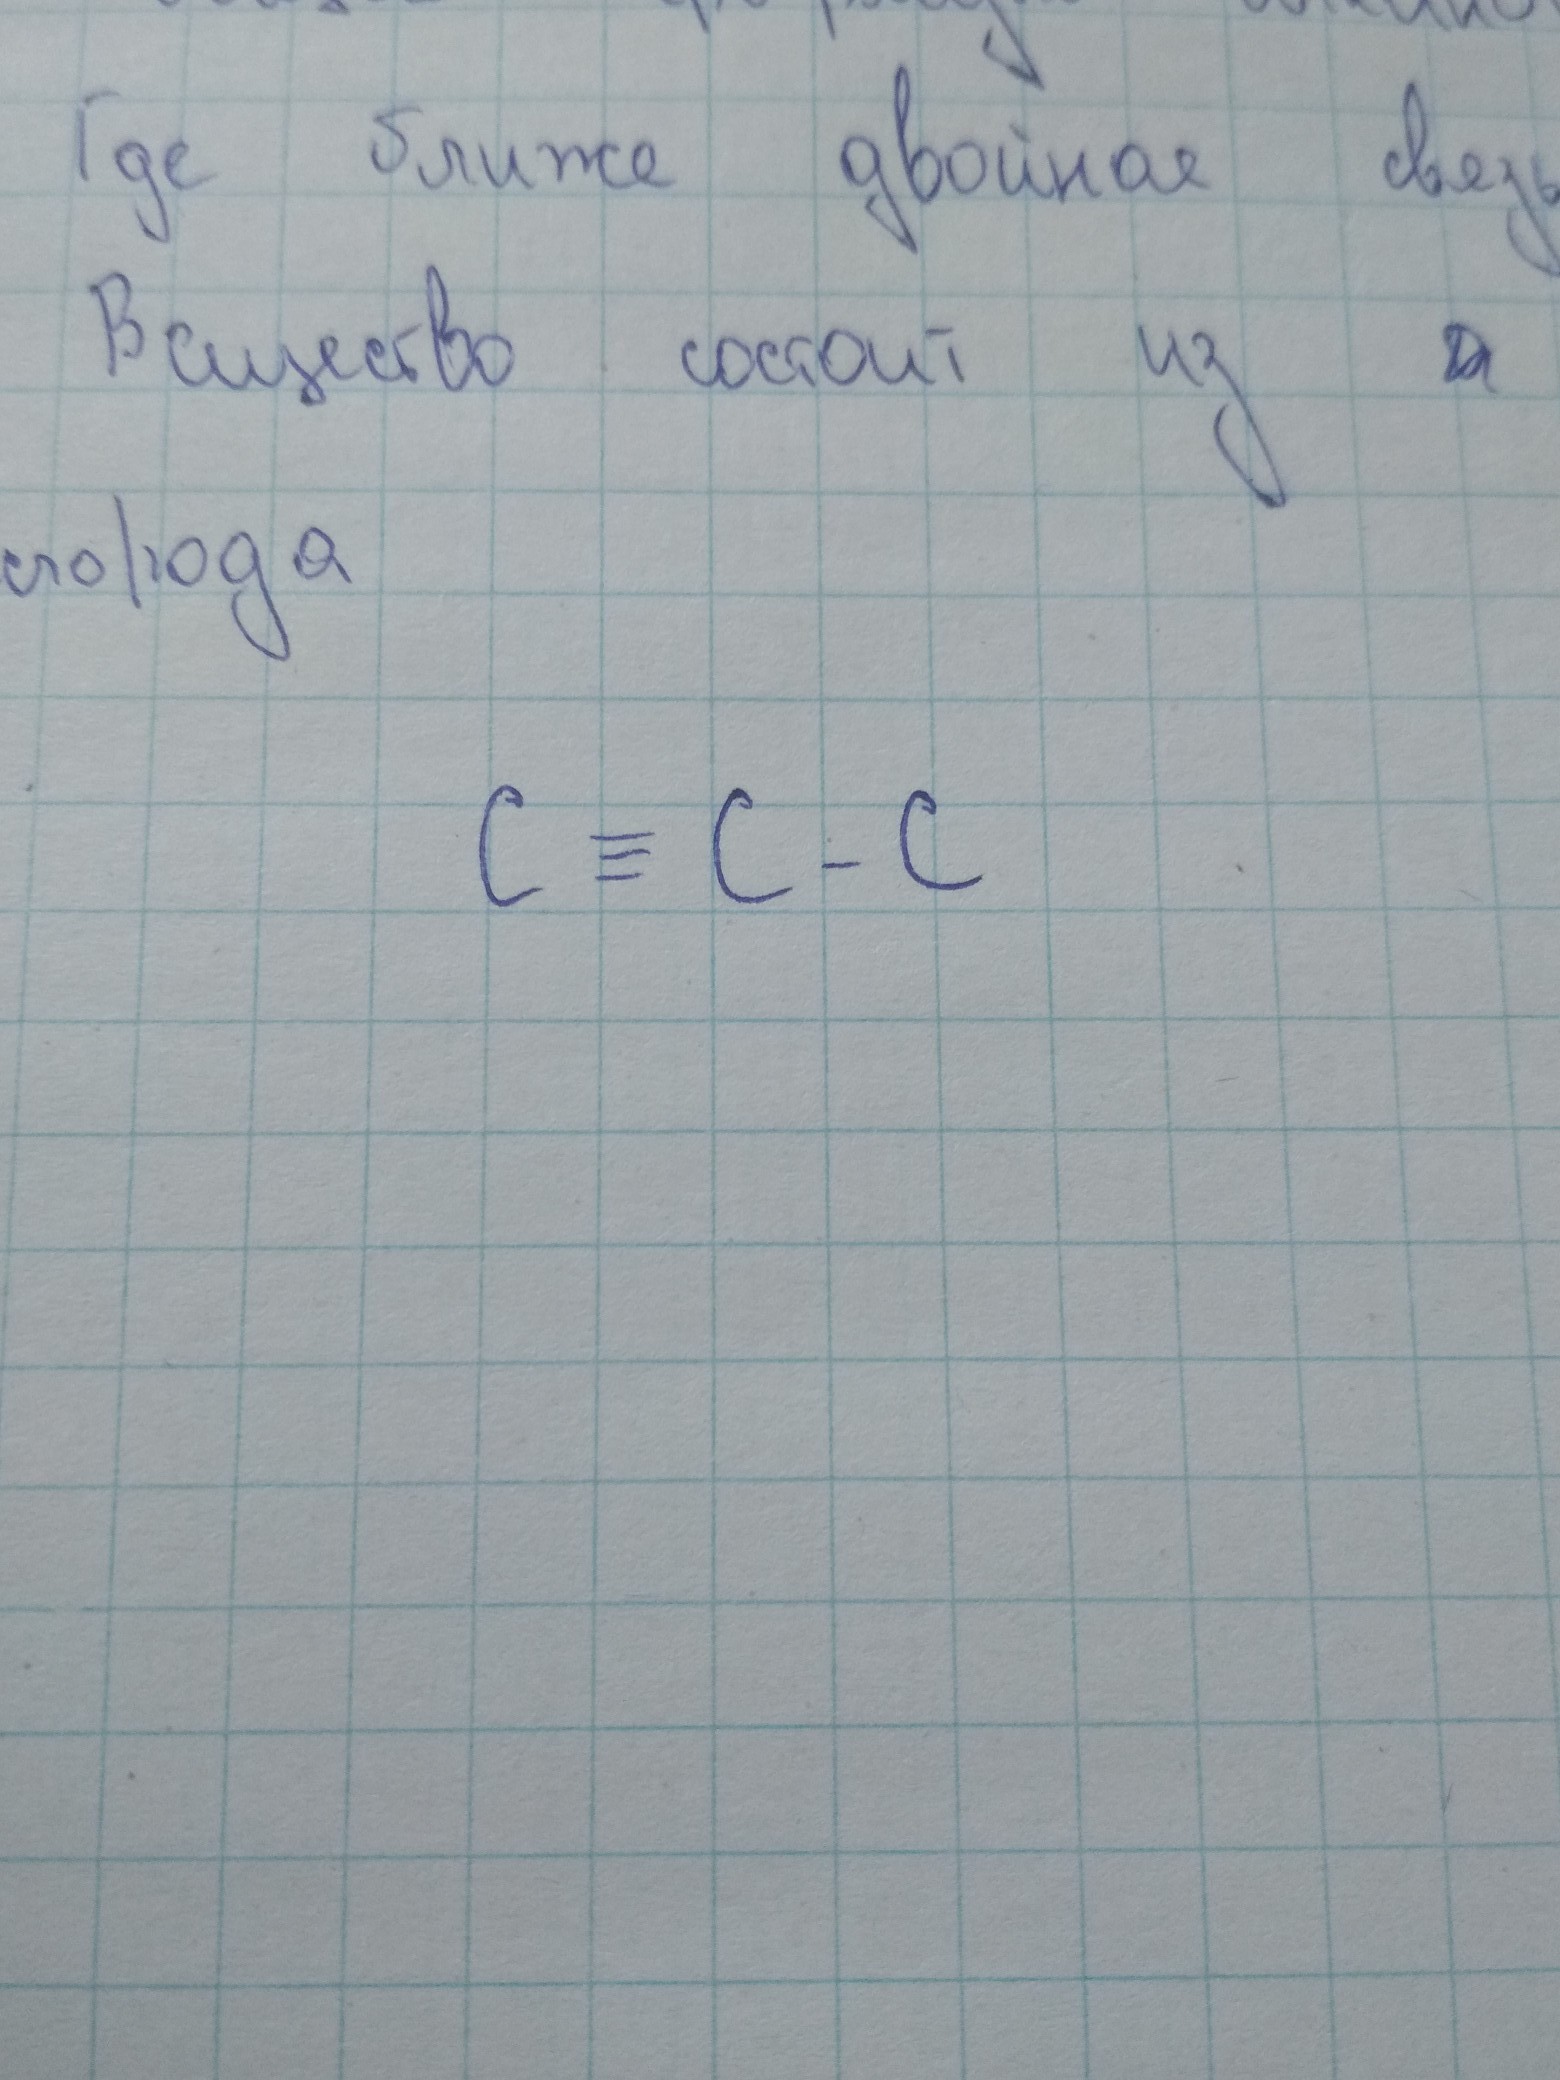 Где ближе двойная связь
Вещество состоит из
C ≡ C - C